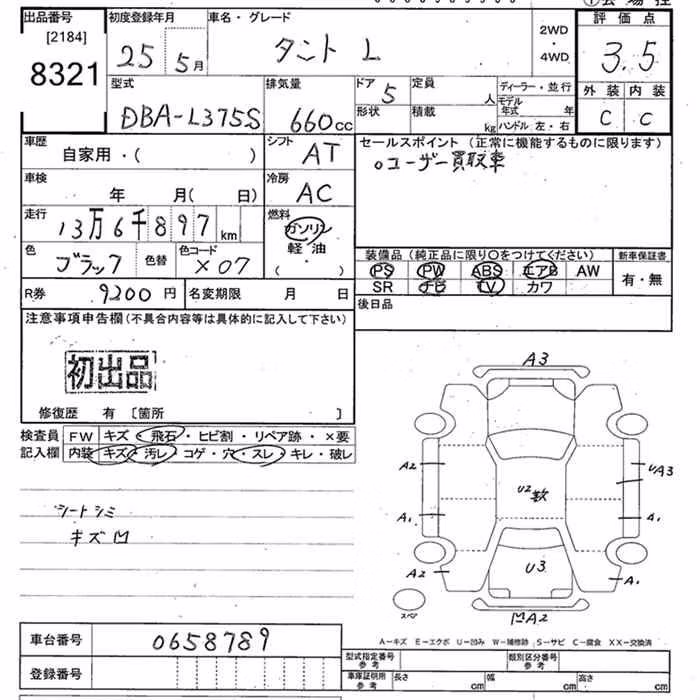 出品番号 [2184] 8321
初度登録年月 25 5月
車名・グレード タント L
2WD・4WD
評価点 3.5
外装 内装
C C
型式 DBA-L375S
排気量 660cc
ドア 5 定員 人
形状 積載 kg
ディーラー・並行
モデル年式 年
ハンドル 左・右
車歴 自家用・( )
シフト AT
セールスポイント (正常に機能するものに限ります)
○ユーザー買取車
車検 年 月( 日)
冷房 AC
走行 13万6千897km
燃料 ガソリン
軽油
( )
色 ブラック 色替 色コード X07
装備品 (純正品に限り○をつけてください) 新車保証書
PS PW ABS エアB AW 有・無
SR ナビ TV カワ
R券 9200円 名変期限 月 日
後日品
注意事項申告欄(不具合内容等は具体的に記入して下さい)
初出品
修復歴 有 〔箇所 〕
検査員 FW キズ・飛石・ヒビ割・リペア跡・×要
記入欄 内装 キズ・汚レ・コゲ・穴・スレ・キレ・破レ
シートシミ
キズ凹
A3
A2 UA3
U2 歎
A1 A1
A2 U3 A1
スペア
凹A2
A-キズ E-エクボ U-凹み W-補修跡 S-サビ C-腐食 XX-交換済
車台番号 0658789
登録番号
型式指定番号 参考 類別区分番号 参考
車庫証明用 参考 長さ cm 幅 cm 高さ cm